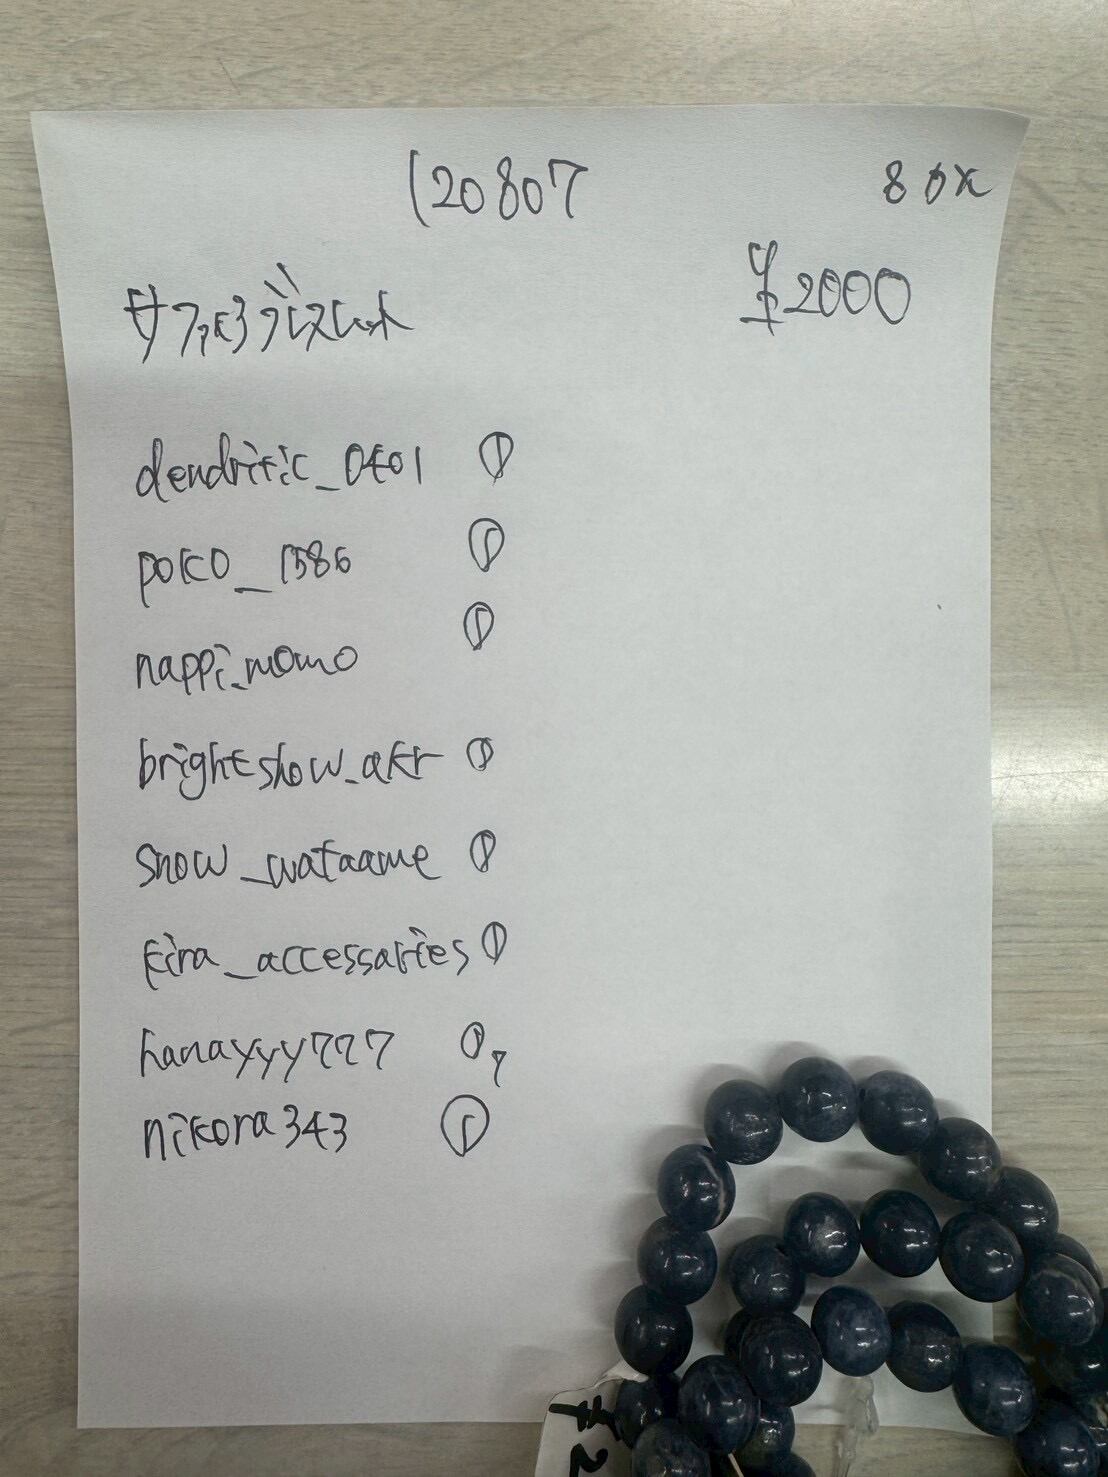 120807
80x
¥2000
サファイヤブレスレット
dendritic_0401 ①
poko_1586 ①
nappi_momo ①
brightshow_akr ①
snow_wataame ①
kira_accessaries ①
hanayyy777 ①
nikora343 ①